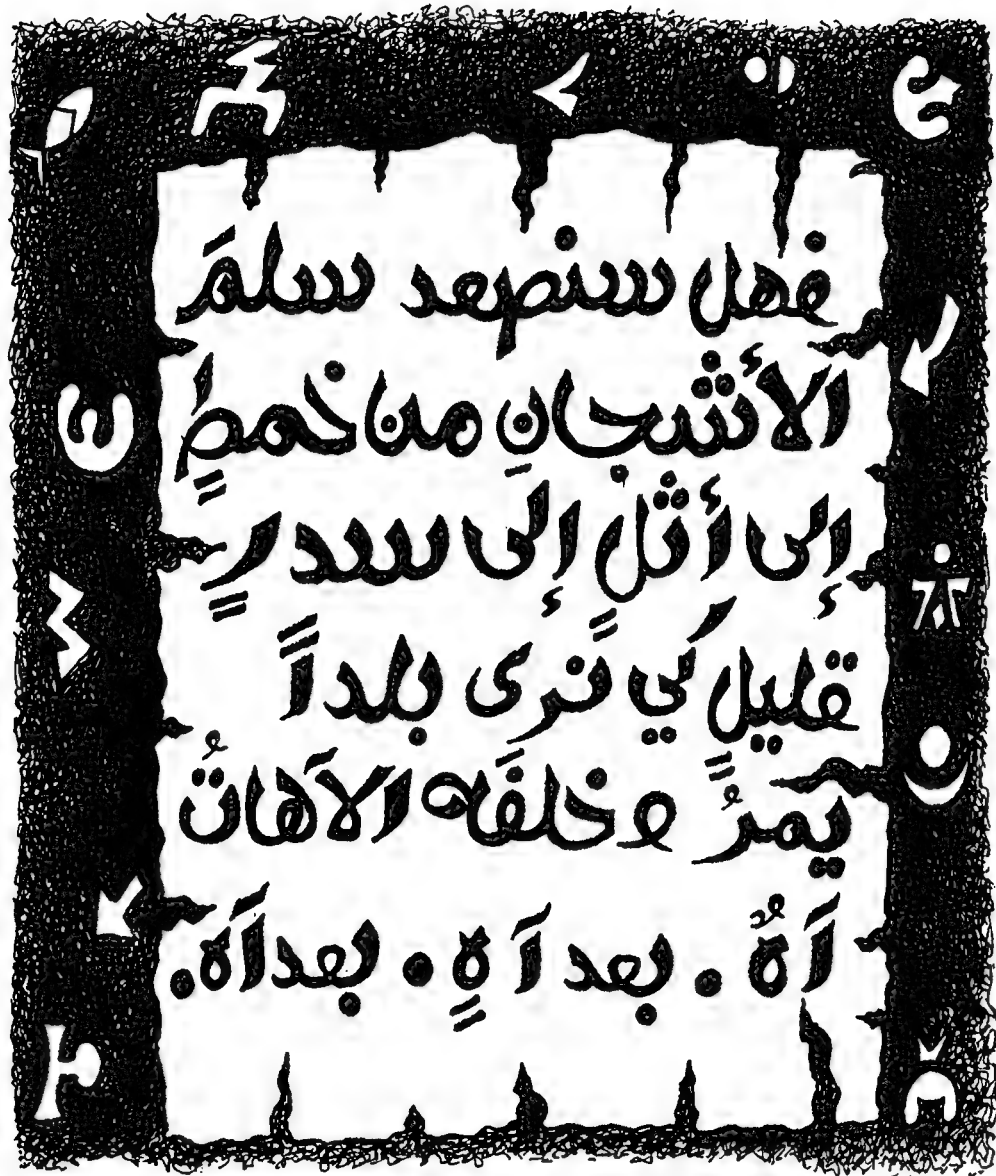 فهل سنصعد سلمَ
الأشجانِ من خمطٍ
إلى أثلٍ إلى سدرٍ
قليلٍ كي نرى بلداً
يمرُّ وخلفَه الآهاتُ
آهٌ . بعد آهٍ . بعد آهَ .